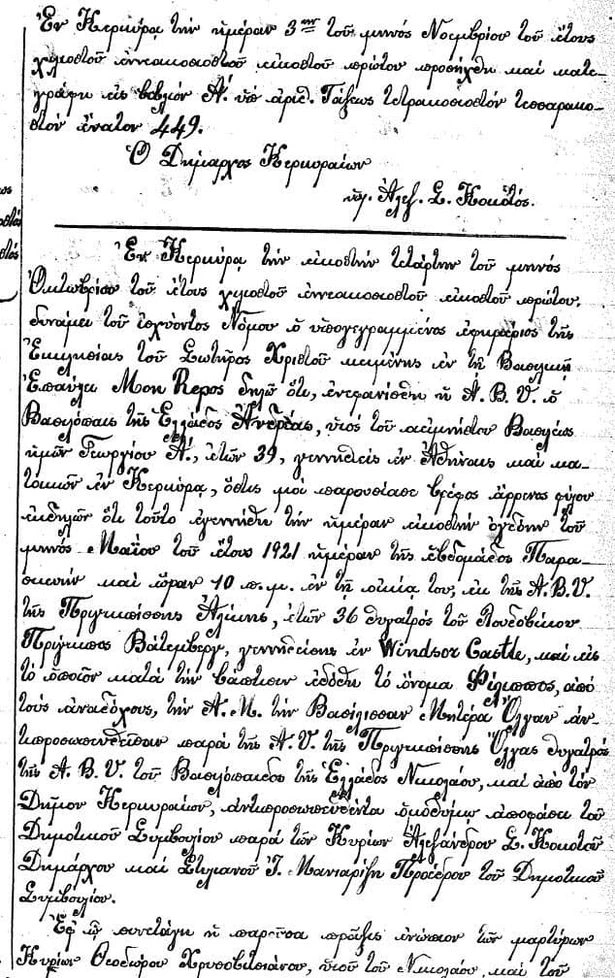 Ἐν Κερκύρᾳ τὴν ἡμέραν 3ην τοῦ μηνὸς Νοεμβρίου τοῦ ἔτους
χιλιοστοῦ ἐννεακοσιοστοῦ εἰκοστοῦ πρώτου προσήχθη καὶ κατε-
γράφη εἰς βιβλίον Α΄. ὑπ' ἀριθ. Τάξεως τετρακοσιοστὸν τεσσαρακο-
στὸν ἔνατον 449.
Ὁ Δήμαρχος Κερκυραίων
ὑπ. Ἀλεξ. Σ. Κοκοτός.
Ἐν Κερκύρᾳ τὴν εἰκοστὴν τετάρτην τοῦ μηνὸς
Ὀκτωβρίου τοῦ ἔτους χιλιοστοῦ ἐννεακοσιοστοῦ εἰκοστοῦ πρώτου,
δυνάμει τοῦ ἰσχύοντος Νόμου ὁ ὑπογεγραμμένος ἐφημέριος τῆς
Ἐκκλησίας τοῦ Σωτῆρος Χριστοῦ κειμένης ἐν τῇ Βασιλικῇ
Ἐπαύλει Mon Repos δηλῶ ὅτι, ἐνεφανίσθη ἡ Α. Β. Υ. ὁ
Βασιλόπαις τῆς Ἑλλάδος Ἀνδρέας, υἱὸς τοῦ ἀειμνήστου Βασιλέως
ἡμῶν Γεωργίου Α΄., ἐτῶν 39, γεννηθεὶς ἐν Ἀθήναις καὶ κα-
τοικῶν ἐν Κερκύρᾳ, ὅστις μοὶ παρουσίασε βρέφος ἄρρενος φύλου
ἐκδηλῶν ὅτι τοῦτο ἐγεννήθη τὴν ἡμέραν εἰκοστὴν ὀγδόην τοῦ
μηνὸς Μαΐου τοῦ ἔτους 1921 ἡμέραν τῆς ἑβδομάδος Παρα-
σκευὴν καὶ ὥραν 10 π.μ. ἐν τῇ οἰκίᾳ του, ἐκ τῆς Α.Β.Υ.
τῆς Πριγκιπίσσης Ἀλίκης, ἐτῶν 36 θυγατρὸς τοῦ Λουδοβίκου
Πρίγκιπος Βάτεμβεργ, γεννηθείσης ἐν Windsor Castle, καὶ εἰς
τὸ ὁποῖον κατὰ τὴν βάπτισιν ἐδόθη τὸ ὄνομα Φίλιππος, ἀπὸ
τοὺς ἀναδόχους, τὴν Α.Μ. τὴν Βασίλισσαν Μητέρα Ὄλγαν ἀν-
τιπροσωπευθεῖσαν παρὰ τῆς Α.Υ. τῆς Πριγκιπίσσης Ὄλγας θυγατρὸς
τῆς Α.Β.Υ. τοῦ Βασιλόπαιδος τῆς Ἑλλάδος Νικολάου, καὶ ἀπὸ τὸν
Δῆμον Κερκυραίων, ἀντιπροσωπευθέντα ὁμοθύμῳ ἀποφάσει τοῦ
Δημοτικοῦ Συμβουλίου παρὰ τῶν Κυρίων Ἀλεξάνδρου Σ. Κοκοτοῦ
Δημάρχου καὶ Στυλιανοῦ Ἰ. Μανιαρίζη Προέδρου τοῦ Δημοτικοῦ
Συμβουλίου.
Ἐφ' ᾧ συνετάγη ἡ παροῦσα πρᾶξις ἐνώπιον τῶν μαρτύρων
Κυρίων Θεοδώρου υἱοῦ τοῦ Νικολάου, καὶ τοῦ